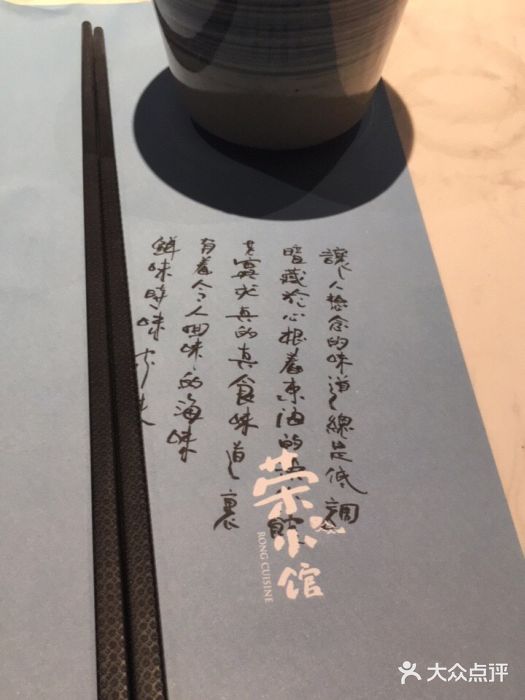 讓人惦念的味道總是低調
暗藏於心根着東海的
真食味道裏
有着令人回味的海味
鮮味時味
荣小馆
RONG CUISINE
大众点评